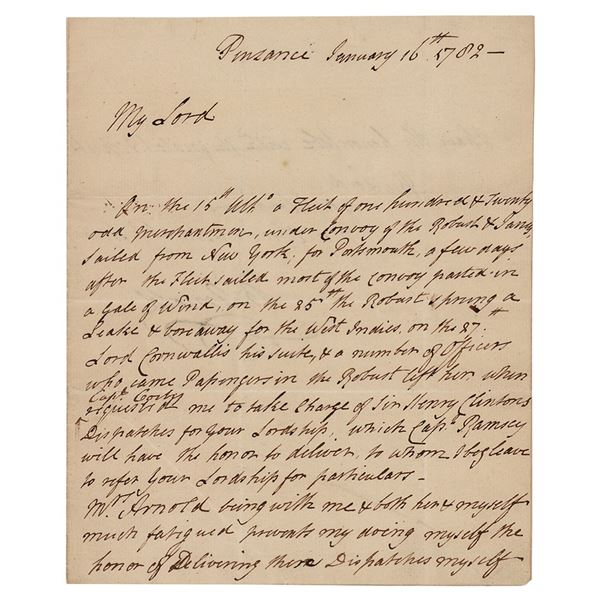 Penzance January 16th 1782 —
My Lord
On the 15th Ulto a Fleet of one hundred & Twenty
odd Merchantmen, under Convoy of the Robust & Janus
Sailed from New York, for Portsmouth, a few days
after the Fleet sailed most of the Convoy parted in
a Gale of Wind, on the 25th the Robust sprung a
Leake & bore away for the West Indies. on the 27th
Lord Cornwallis his suite, & a number of Officers
who came Passengers in the Robust left her when
Capt. Cosby
requested me to take Charge of Sir Henry Clintons
Dispatches for Your Lordship, which Capt. Ramsey
will have the honor to deliver, to whom I beg leave
to refer Your Lordship for particulars —
Mrs Arnold being with me & both her & myself
much fatigued prevents my doing myself the
honor of Delivering them Dispatches myself